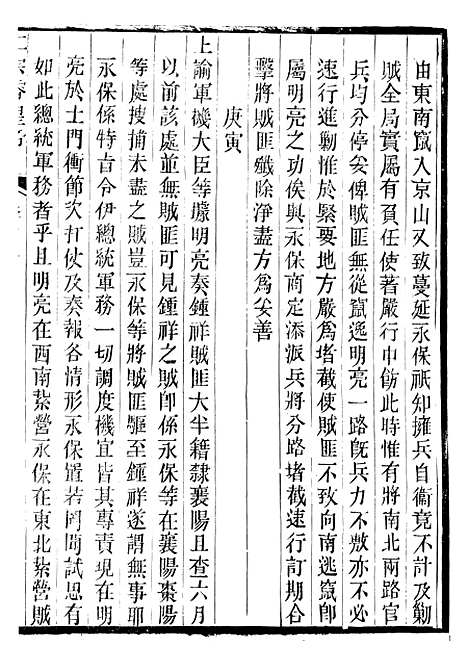 由東南竄入京山又致蔓延永保祇知擁兵自衞竟不計及勦
賊全局實屬有負任使著嚴行申飭此時惟有將南北兩路官
兵均分停妥俾賊匪無從竄逸明亮一路旣兵力不敷亦不必
速行進勦惟於緊要地方嚴爲堵截使賊匪不致向南逃竄卽
屬明亮之功俟與永保商定添派兵將分路堵截速行訂期合
擊將賊匪殲除淨盡方爲妥善
庚寅
上諭軍機大臣等據明亮奏鍾祥賊匪大半籍隸襄陽且查六月
以前該處並無賊匪可見鍾祥之賊卽係永保等在襄陽棗陽
等處搜捕未盡之賊豈永保等將賊匪驅至鍾祥遂謂無事耶
永保係特旨令伊總統軍務一切調度機宜皆其專責現在明
亮於土門衝節次打仗及奏報各情形永保置若罔聞試思有
如此總統軍務者乎且明亮在西南紮營永保在東北紮營賊